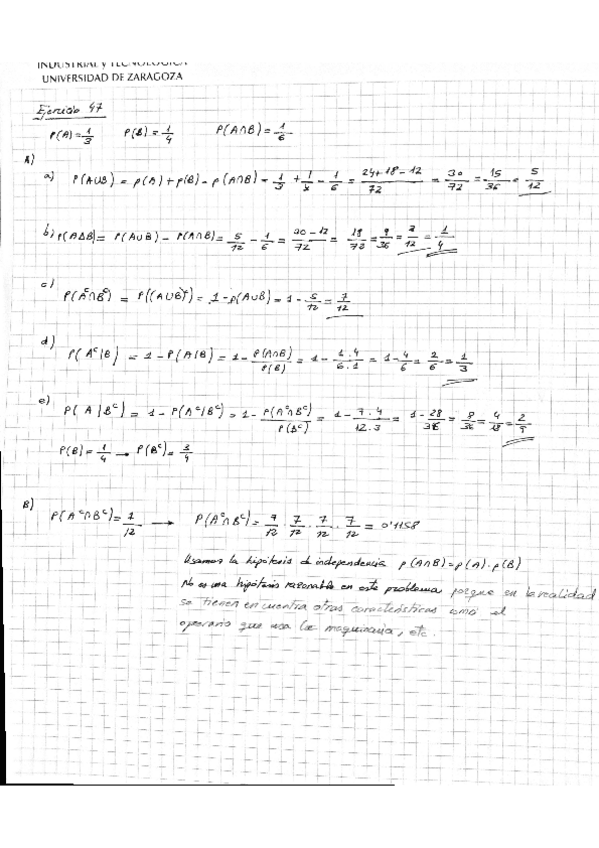 INDUSTRIAL Y TECNOLÓGICA
UNIVERSIDAD DE ZARAGOZA
Ejercicio 47
P(A)=1/3 P(B)=1/4 P(A∩B)=1/6
A)
a) P(A∪B) = P(A)+P(B)-P(A∩B) = 1/3 + 1/4 - 1/6 = (24+18-12)/72 = 30/72 = 15/36 = 5/12
b) P(A∆B) = P(A∪B) - P(A∩B) = 5/12 - 1/6 = (30-12)/72 = 18/72 = 9/36 = 3/12 = 1/4
c) P(Aᶜ∩Bᶜ) = P((A∪B)ᶜ) = 1-P(A∪B) = 1 - 5/12 = 7/12
d) P(Aᶜ|B) = 1-P(A|B) = 1- P(A∩B)/P(B) = 1- (1·4)/(6·1) = 1- 4/6 = 2/6 = 1/3
e) P(A|Bᶜ) = 1-P(Aᶜ|Bᶜ) = 1- P(Aᶜ∩Bᶜ)/P(Bᶜ) = 1- (7·4)/(12·3) = 1- 28/36 = 8/36 = 4/18 = 2/9
P(B)=1/4 → P(Bᶜ)=3/4
B)
P(Aᶜ∩Bᶜ)=7/12 → P(Aᶜ∩Bᶜ) = 7/12 · 7/12 · 7/12 · 7/12 = 0'1158
Usamos la hipótesis de independencia P(A∩B)=P(A)·P(B)
No es una hipótesis razonable en este problema porque en la realidad
se tienen en cuentra otras características como el
operario que usa la maquinaria, etc.